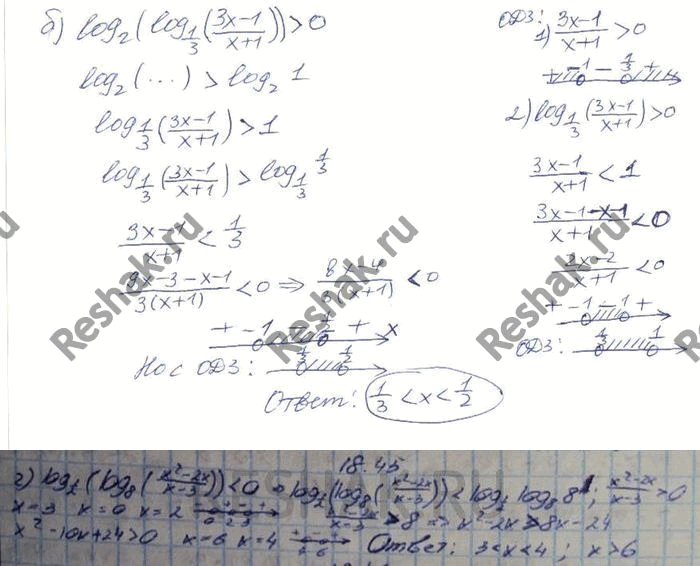 б) log₂(log_{1/3}((3x-1)/(x+1)))>0
log₂(...) > log₂ 1
log_{1/3}((3x-1)/(x+1)) > 1
log_{1/3}((3x-1)/(x+1)) > log_{1/3} 1/3
(3x-1)/(x+1) < 1/3
(9x-3-x-1)/(3(x+1)) <0 ⇒ (8x-4)/(3(x+1)) <0
+ -1 - 1/2 + x
Но с ОДЗ: 1/3 1/2
Ответ: 1/3 <x< 1/2
ОДЗ:
1) (3x-1)/(x+1) >0
+ -1 - 1/3 +
2) log_{1/3}((3x-1)/(x+1))>0
(3x-1)/(x+1) < 1
(3x-1-x-1)/(x+1) <0
(2x-2)/(x+1) <0
+ -1 - 1 +
ОДЗ: 1/3 1
Reshak.ru
Reshak.ru
Reshak.ru
18.45
г) (log₈((x²-2x)/(x-3)))<0 log₈ 8 ; (x²-2x)/(x-3) >0
x=3 x=0 x=2 0 2 3 >8 => x²-2x>8x-24
x²-10x+24>0 x=6 x=4 + - + 4 6 Ответ: 3<x<4 ; x>6